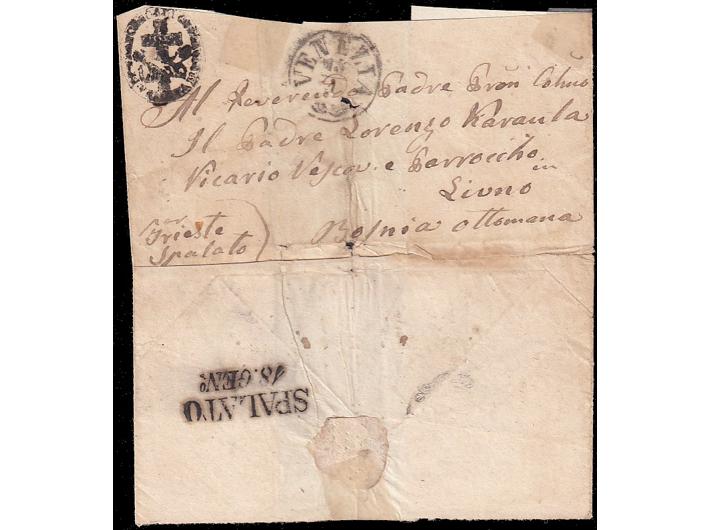 VENEZIA
Al Reverendo Padre Pron Colmo
Il Padre Lorenzo Karaula
Vicario Vescov. e Parroccho
in
Livno
Bosnia Ottomana
per
Trieste
Spalato
SPALATO
18. GENº